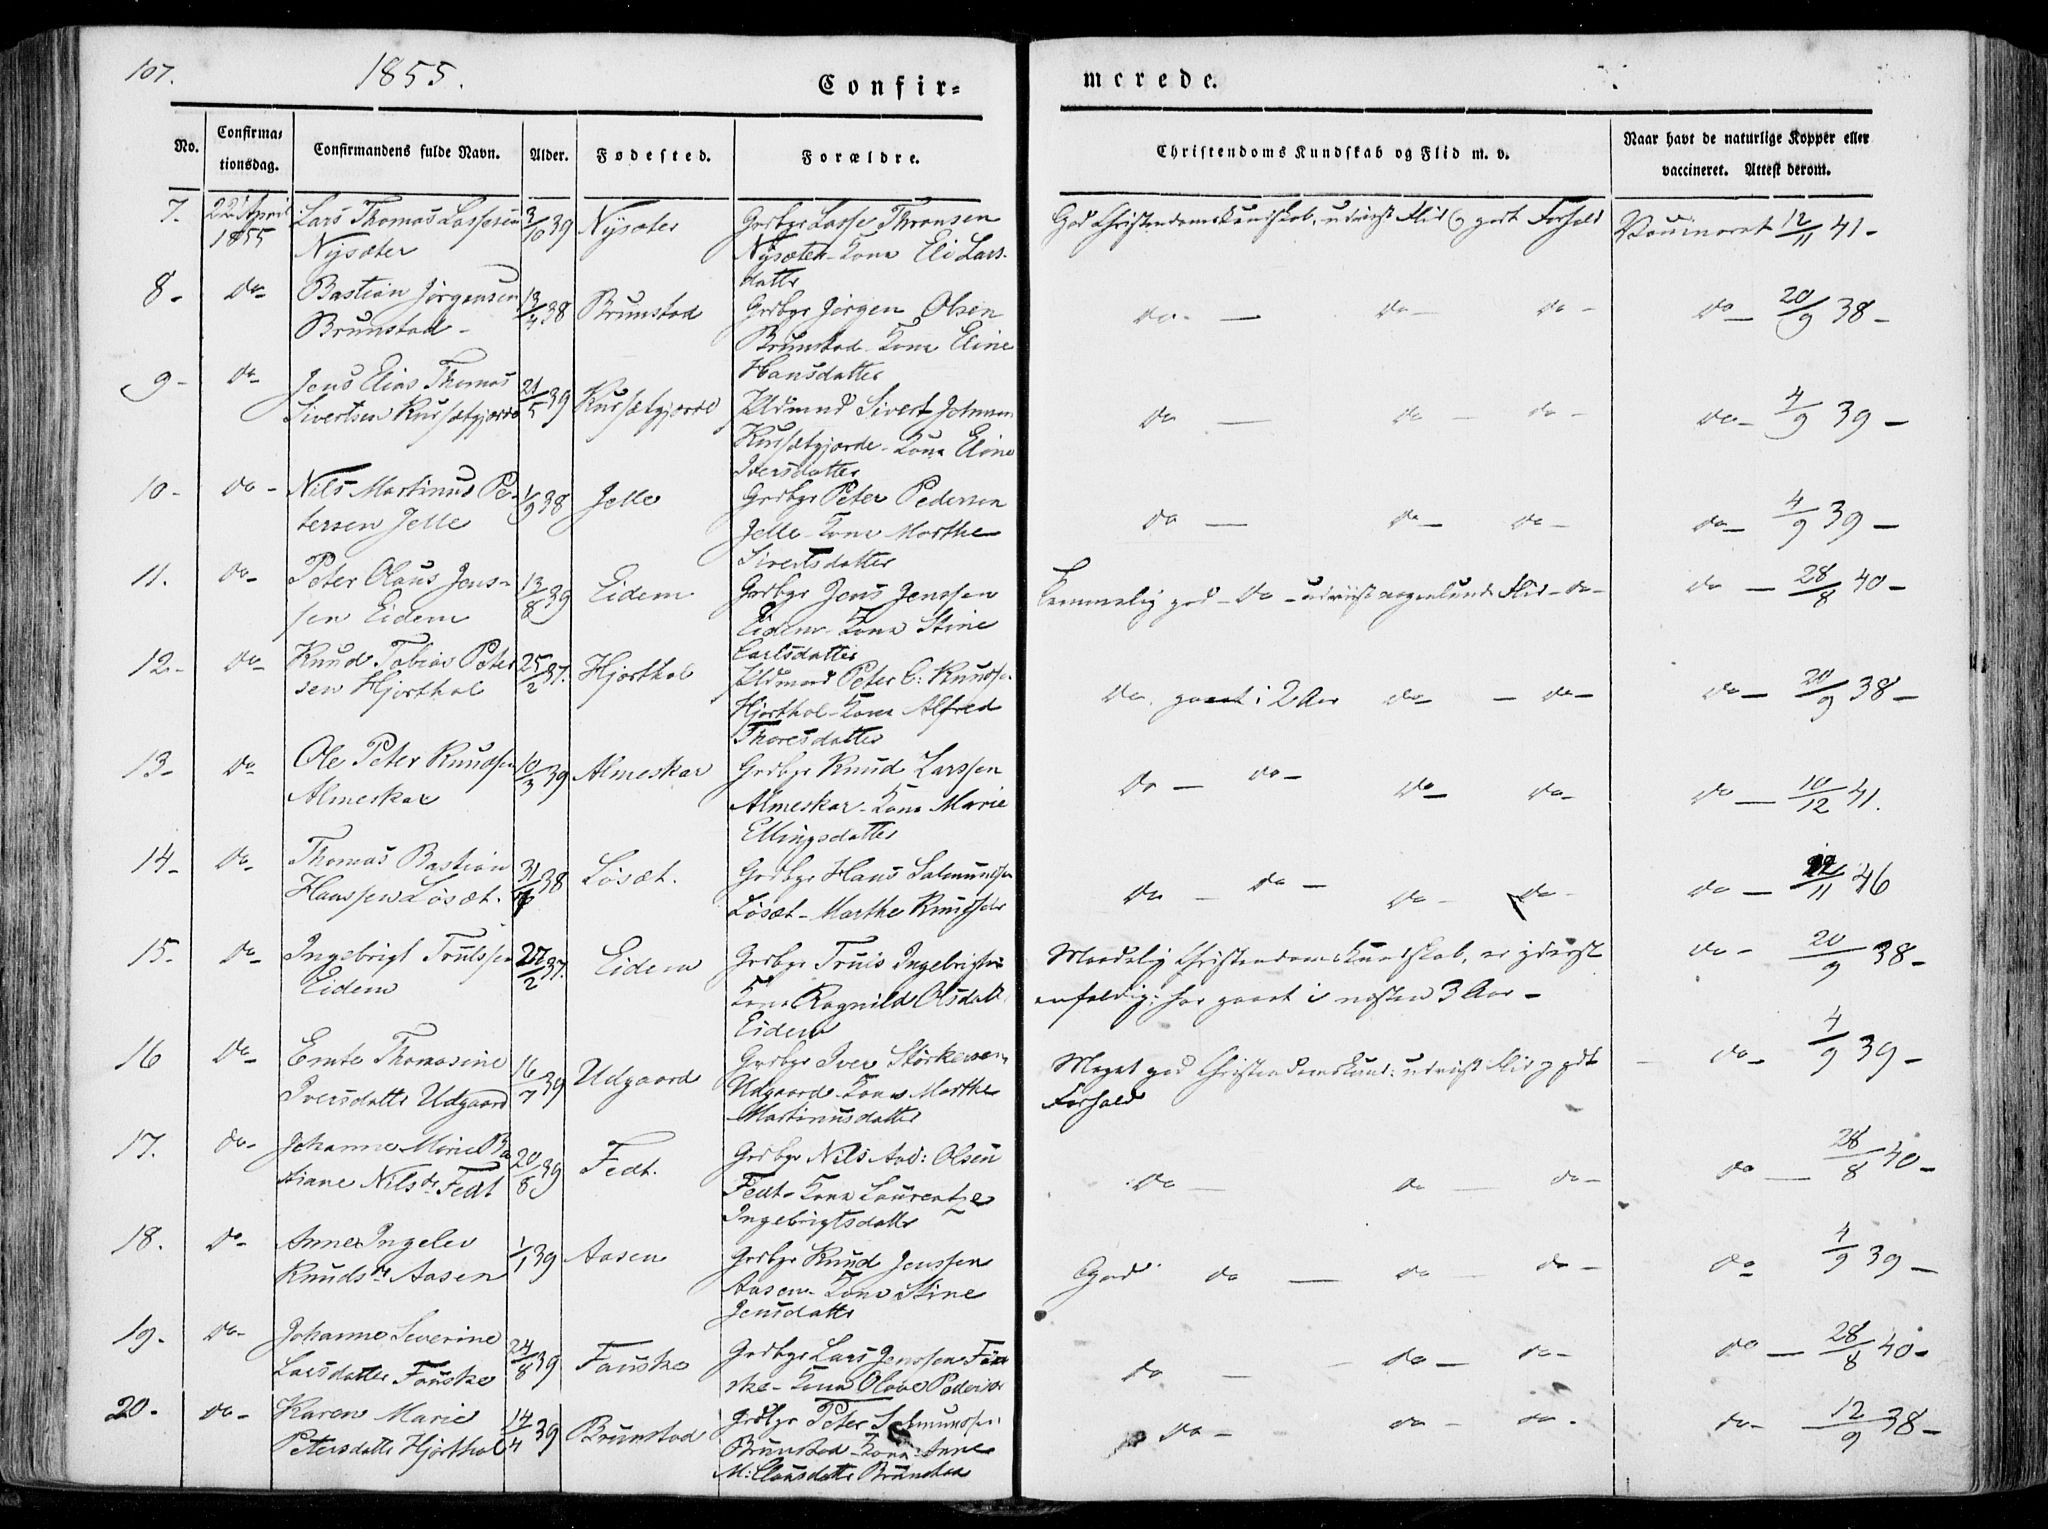 107. 1855. Confir=
merede.
No. Confirma=tionsdag. Confirmandens fulde Navn. Alder. Fødested. Forældre. Christendoms Kundskab og Flid m. v. Naar havt de naturlige Kopper eller vaccineret. Attest derom.
7. 22 April Lars Thomas Lassesen 3/10 39 Nysæter Grdbgr Lasse Thronsen God Christendomskundskab, udviist Flid og godt Forhold Vaccineret 12/11 41-
1855 Nysæter Nysæter Kone Eli Lars-
datter
8- do- Bastian Jørgensen 13/4 38 Brunstad Grdbgr Jørgen Olsen do- — do- do- do- 20/9 38-
Brunstad- Brunstad- Kone Eline
Hansdatter
9- do- Jens Elias Thomas 21/5 39 Kursetgjærde Pldmand Sivert Johnsen do — do- do- do- 4/9 39-
Sivertsen Kursetgjærde Kursetgjærde- Kone Eline
Iversdatter
10- do- Nils Martinus Pe- 1/9 38 Jelle Grdbgr Peter Pedersen do — do- do- do- 4/9 39-
tersen Jelle Jelle- Kone Marthe
Sivertsdatter
11. do- Peter Olaus Jens- 13/8 39 Eidem Grdbgr Jens Jenssen Temmelig god- do- udviist nogenlunde Flid- do- do- 28/8 40-
sen Eidem Eidem- Kone Stine
Carlsdatter
12- do- Knud Tobias Peter 25/2 37. Hjorthol Pldmand Peter C: Knudsen do. gaaet i 2 Aar do- - do- do- 20/9 38-
sen Hjorthol Hjorthol- Kone Alfred
Thoresdatter
13- do Ole Peter Knudsen 10/3 39 Almeskar Grdbgr Knud Larssen do- do- do- do- do- 10/12 41.
Almeskar Almeskar- Kone Marie
Ellingsdatter
14- do- Thomas Bastian 38 Løsæt. Grdbgr Hans Salmundsen do- do- do- do- do- 46
Hanssen Løsæt. Løsæt- Marthe
15- do- Ingebrigt Trulssen 27/2 37. Eidem Grdbgr Truls Ingebrigtsen Maadelig Christendomskundskab, er yderst do- 20/9 38-
Eidem Kone Ragnild Olsdatter enfoldig; har gaaet i næsten 3 Aar-
Eidem
16 do- Emte Thomasine 16/7 39 Udgaard Grdbgr Iver Størkersen Meget god Christendomskund: udviist Flid og godt do- 4/9 39-
Iversdatter Udgaard Udgaard Kone Marthe Forhold
Martinusdatter
17. do- Johanne Marie Ba 20/8 39 Fedt. Grdbgr Nils And: Olsen do- do- do- do- 28/8 40-
stiane Nilsdr Fedt Fedt- Kone Laurentze
Ingebrigtsdatter
18. do- Anne Ingelev 1/1 39 Aasen Grdbgr Knud Jenssen God do- do- do- do- 4/9 39-
Knudsdr Aasen Aasen- Kone Stine
Jensdatter
19- do- Johanne Severine 24/8 39 Fauske Grdbgr Lars Jenssen Fau do- do- do- do- 28/8 40-
Larsdatter Fauske ske- Kone Olave
20- do- Karen Marie 14/4 39 Brunstad Grdbgr Peter Salmundsen do- do- do- do- 12/9 38-
Petersdatter Hjorthol Brunstad- Kone Anne
M: Clausdatter Brunstad